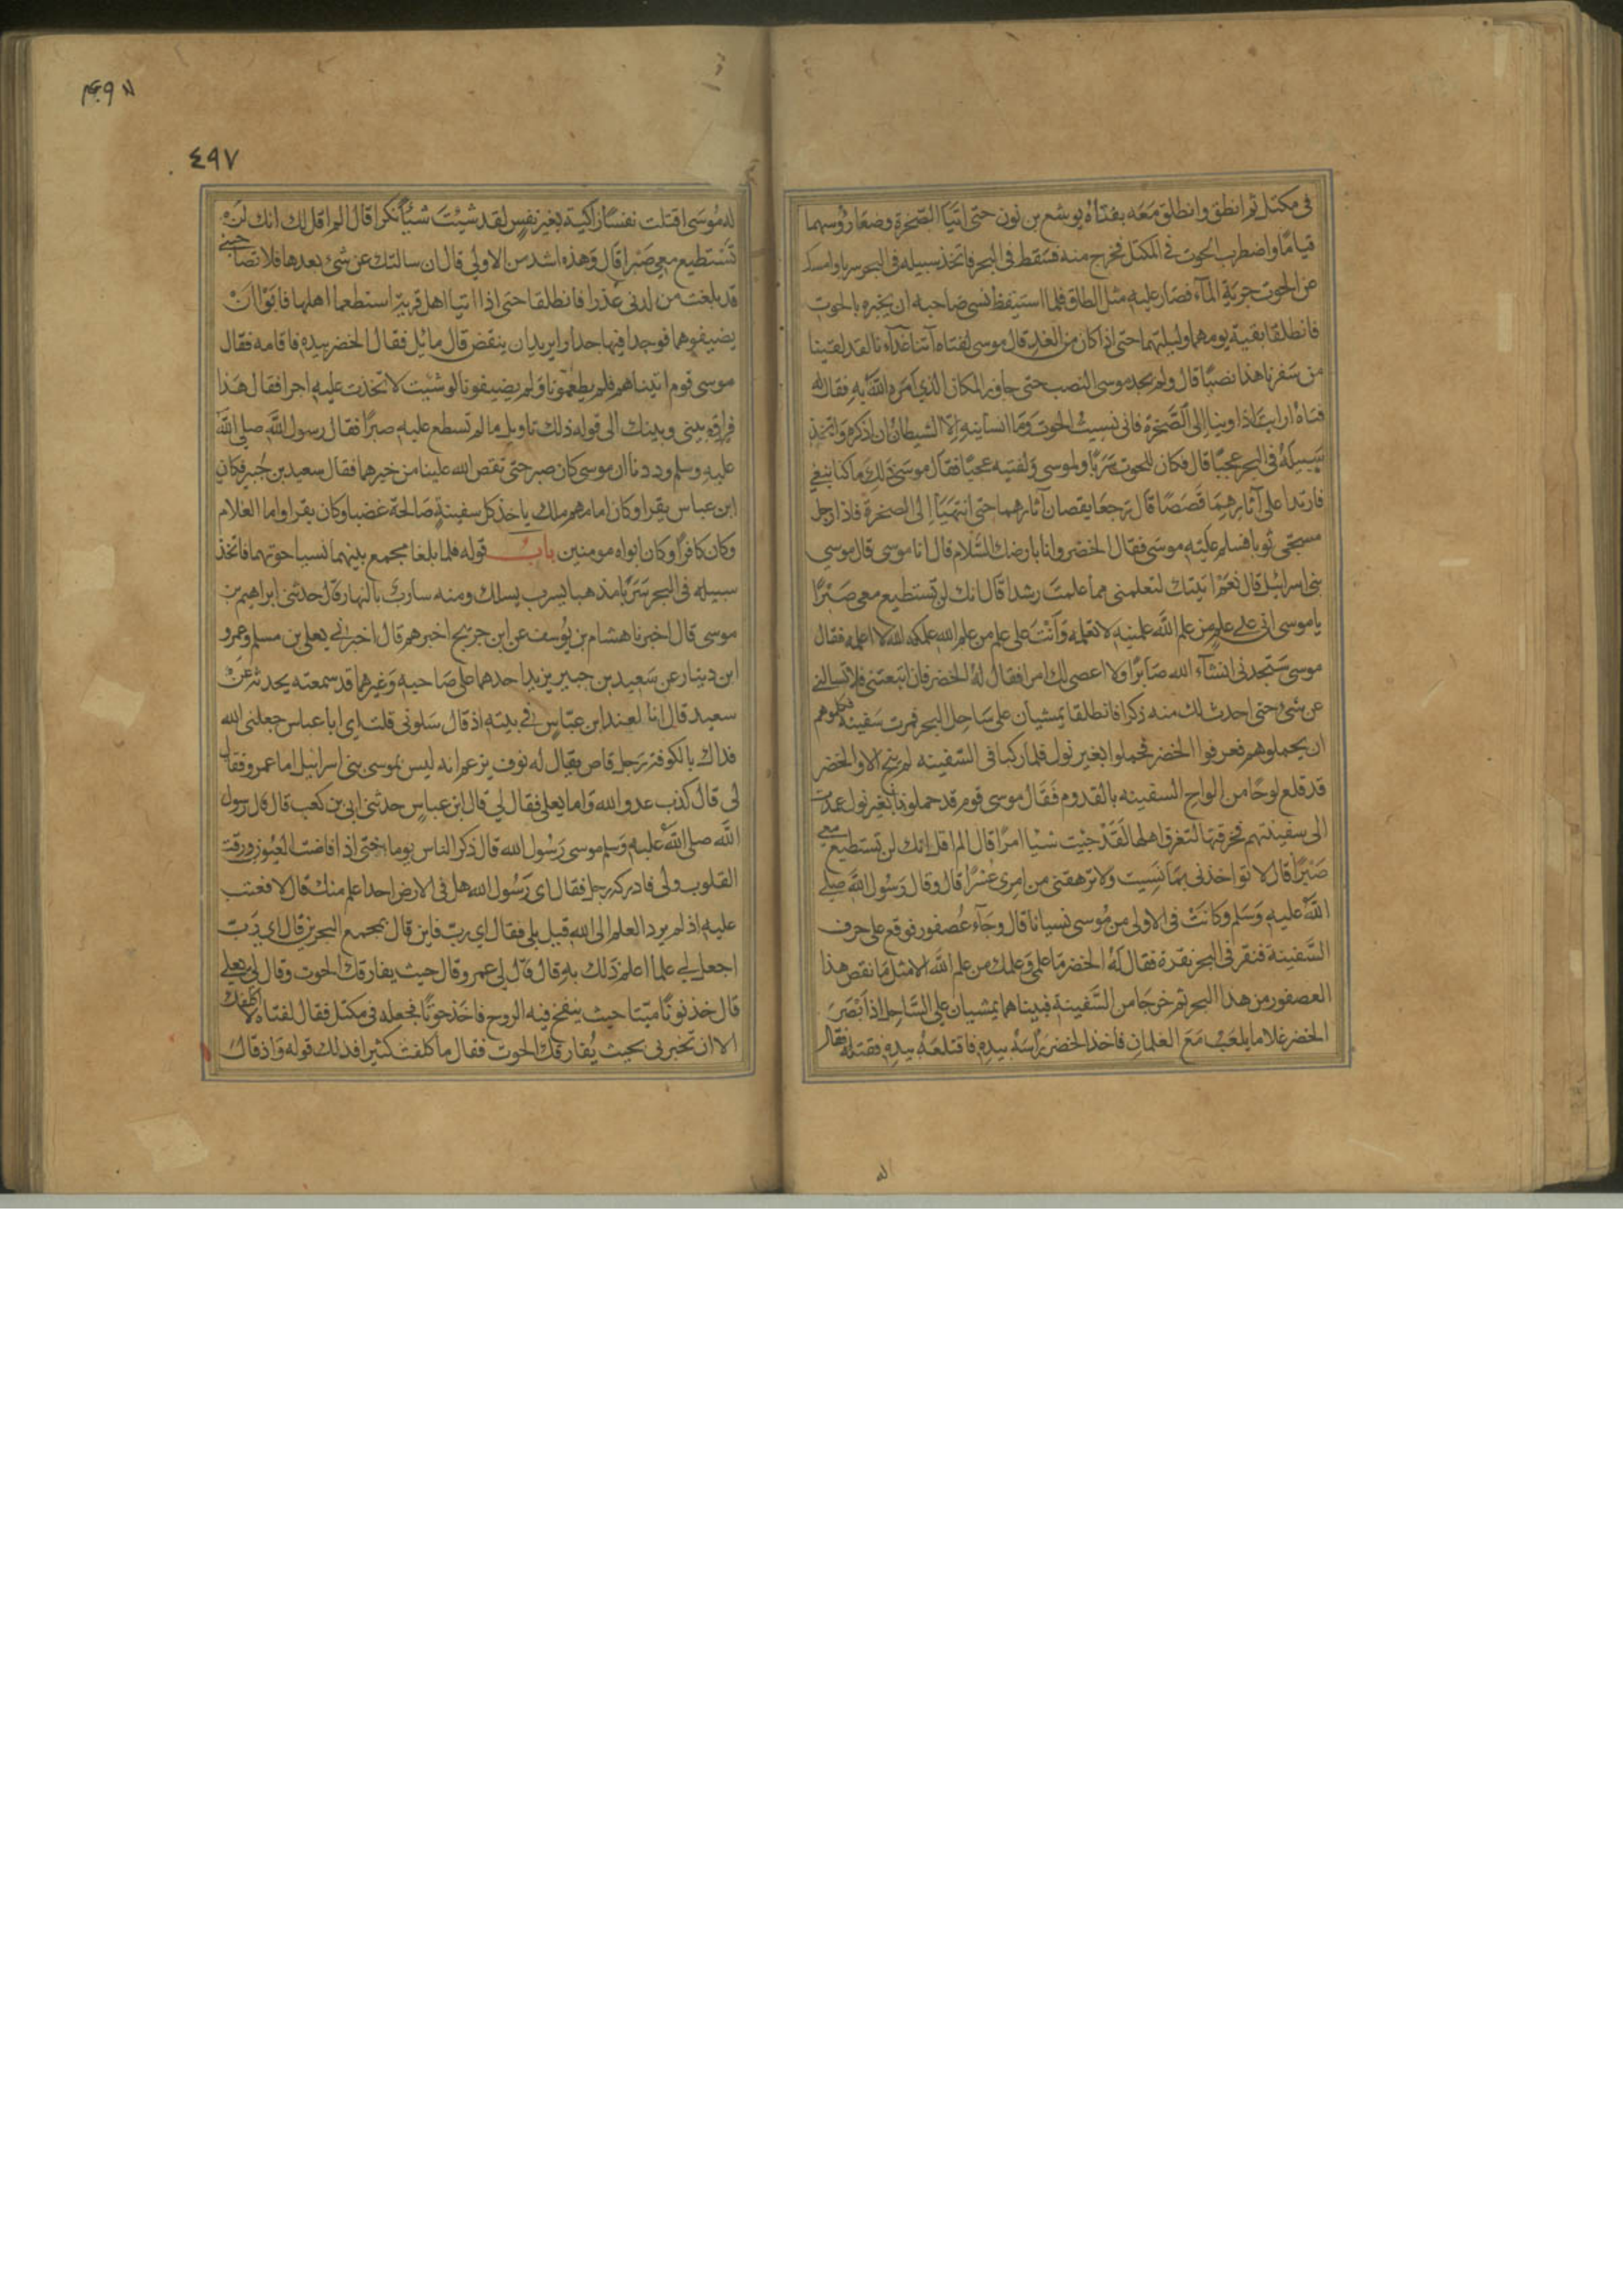 في مكتل ثم انطلق وانطلق معه بفتاه يوشع بن نون حتى اتيا الصخرة وضعا رؤسهما
فناما واضطرب الحوت في المكتل فخرج منه فسقط في البحر فاتخذ سبيله في البحر سربا وامسك
عن الحوت جرية المآء فصار عليه مثل الطاق فلما استيقظ نسى صاحبه ان يخبره بالحوت
فانطلقا بقية يومهما وليلتهما حتى اذا كان من الغد قال موسى لفتاه آتنا غدآءنا لقد لقينا
من سفرنا هذا نصبا قال ولم يجد موسى النصب حتى جاوز المكان الذي امره الله به فقال له
فتاه ارايت اذ اوينا الى الصخرة فاني نسيت الحوت وما انسانيه الا الشيطان ان اذكره واتخذ
سبيله في البحر عجبا قال فكان للحوت سربا ولموسى ولفتيه عجبا فقال موسى ذلك ما كنا نبغي
فارتدا على آثارهما قصصا قال رجعا يقصان آثارهما حتى انتهيا الى الصخرة فاذا رجل
مسجى ثوبا فسلم عليه موسى فقال الخضر وانا بارضك السلام قال انا موسى قال موسى
بني اسرائيل قال نعم اتيتك لتعلمني مما علمت رشدا قال انك لن تستطيع معي صبرا
يا موسى اني على علم من علم الله علمنيه لا تعلمه وانت على علم من علم الله علمكه الله لا اعلمه فقال
موسى ستجدني انشآء الله صابرا ولا اعصى لك امرا فقال له الخضر فان اتبعتني فلا تسالني
عن شيء حتى احدث لك منه ذكرا فانطلقا يمشيان على ساحل البحر فمرت سفينة فكلموهم
ان يحملوهم فعرفوا الخضر فحملوا بغير نول فلما ركبا في السفينه لم يفج الا والخضر
قد قلع لوحا من الواح السفينه بالقدوم فقال موسى قوم قد حملونا بغير نول عمدت
الى سفينتهم فخرقتها لتغرق اهلها لقد جئت شيا امرا قال الم اقل انك لن تستطيع معي
صبرا قال لا تواخذني بما نسيت ولا ترهقني من امري عسرا قال وقال رسول الله صلى
الله عليه وسلم وكانت في الاولى من موسى نسيانا قال وجآء عصفور فوقع على حرف
السفينة فنقر في البحر نقرة فقال له الخضر ما علمي وعلمك من علم الله الا مثل ما نقص هذا
العصفور من هذا البحر ثم خرجا من السفينة فبينا هما يمشيان على الساحل اذ ابصر
الخضر غلاما يلعب مع الغلمان فاخذ الخضر براسه بيده فاقتلعه بيده فقتله فقال
له
٤٩٧
له موسى اقتلت نفسا زاكية بغير نفس لقد شئت شيئا نكرا قال الم اقل لك انك لن
تستطيع معي صبرا قال وهذه اشد من الاولى قال ان سالتك عن شئ بعدها فلا تصاحبني
قد بلغت من لدني عذرا فانطلقا حتى اذا اتيا اهل قرية استطعما اهلها فابوا ان
يضيفوهما فوجدا فيها جدارا يريد ان ينقض قال مائل فقال الخضر بيده فاقامه فقال
موسى قوم اتيناهم فلم يطعمونا ولم يضيفونا لو شئت لاتخذت عليه اجرا فقال هذا
فراق بيني وبينك الى قوله ذلك تاويل ما لم تسطع عليه صبرا فقال رسول الله صلى الله
عليه وسلم وددنا ان موسى كان صبر حتى تقص الله علينا من خبرهما فقال سعيد بن جبير فكان
ابن عباس يقرا وكان امامهم ملك ياخذ كل سفينة صالحة غضبا وكان يقرا واما الغلام
وكان كافرا وكان ابواه مومنين باب قوله فلما بلغا مجمع بينهما نسيا حوتهما فاتخذ
سبيله في البحر سربا مذهبا يسرب يسلك ومنه سارب بالنهار قال حدثني ابراهيم بن
موسى قال اخبرنا هشام بن يوسف عن ابن جريج اخبرهم قال اخبراني يعلى بن مسلم وعمرو
ابن دينار عن سعيد بن جبير يزيد احدهما على صاحبه وغيرهما قد سمعته يحدثه عن
سعيد قال انا لعند ابن عباس في بيته اذ قال سلوني قلت اي ابا عباس جعلني الله
فداك بالكوفة رجل قاص يقال له نوف يزعم انه ليس بموسى بني اسرائيل اما عمرو فقال
لي قال كذب عدو الله واما يعلى فقال لي قال ابن عباس حدثني ابي بن كعب قال قال رسول
الله صلى الله عليه وسلم موسى رسول الله قال ذكر الناس يوما حتى اذا فاضت العيون ورقت
القلوب ولى فادركه رجل فقال اي رسول الله هل في الارض احدا علم منك قال لا فعتب
عليه اذ لم يرد العلم الى الله قيل بلى فقال اي رب فاين قال بمجمع البحرين قال اي رب
اجعل لي علما اعلم ذلك به قال قال لي عمرو قال حيث يفارقك الحوت وقال لي يعلى
قال خذ نونا ميتا حيث ينفخ فيه الروح فاخذ حوتا فجعله في مكتل فقال لفتاه لا اكلفك
الا ان تخبرني بحيث يفارقك الحوت فقال ما كلفت كثيرا فذلك قوله واذ قال